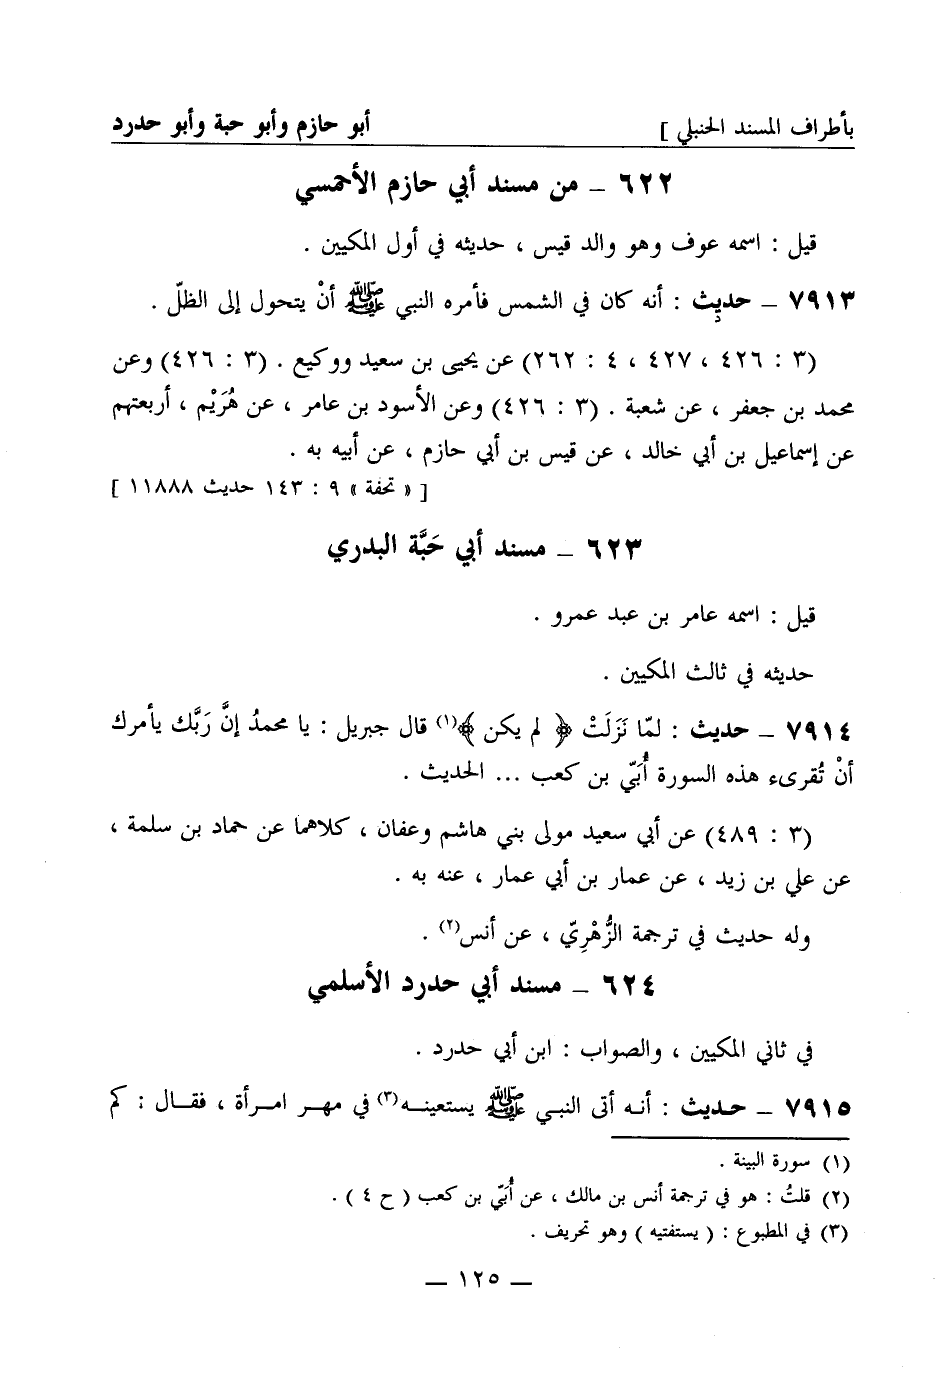 بأطراف المسند الحنبلي ] أبو حازم وأبو حبة وأبو حدرد
٦٢٢ – من مسند أبي حازم الأحمسي
قيل : اسمه عوف وهو والد قيس ، حديثه في أول المكيين .
٧٩١٣ – حديث : أنه كان في الشمس فأمره النبي ﷺ أنْ يتحول إلى الظلّ .
(٣ : ٤٢٦ ، ٤٢٧ ، ٤ : ٢٦٢) عن يحيى بن سعيد ووكيع . (٣ : ٤٢٦) وعن
محمد بن جعفر ، عن شعبة . (٣ : ٤٢٦) وعن الأسود بن عامر ، عن هُرَيْم ، أربعتهم
عن إسماعيل بن أبي خالد ، عن قيس بن أبي حازم ، عن أبيه به .
[ « تحفة » ٩ : ١٤٣ حديث ١١٨٨٨ ]
٦٢٣ – مسند أبي حَبَّة البدري
قيل : اسمه عامر بن عبد عمرو .
حديثه في ثالث المكيين .
٧٩١٤ – حديث : لمّا نَزَلَتْ ﴿ لم يكن ﴾(١) قال جبريل : يا محمدُ إنَّ رَبَّك يأمرك
أنْ تُقرىء هذه السورة أُبَيّ بن كعب ... الحديث .
(٣ : ٤٨٩) عن أبي سعيد مولى بني هاشم وعفان ، كلاهما عن حماد بن سلمة ،
عن علي بن زيد ، عن عمار بن أبي عمار ، عنه به .
وله حديث في ترجمة الزُّهْرِيّ ، عن أنس(٢) .
٦٢٤ – مسند أبي حدرد الأسلمي
في ثاني المكيين ، والصواب : ابن أبي حدرد .
٧٩١٥ – حـديث : أنـه أتى النبـي ﷺ يستعينـه(٣) في مهـر امـرأة ، فقـال : كم
(١) سورة البينة .
(٢) قلتُ : هو في ترجمة أنس بن مالك ، عن أُبَيّ بن كعب ( ح ٤ ) .
(٣) في المطبوع : ( يستفتيه ) وهو تحريف .
– ١٢٥ –